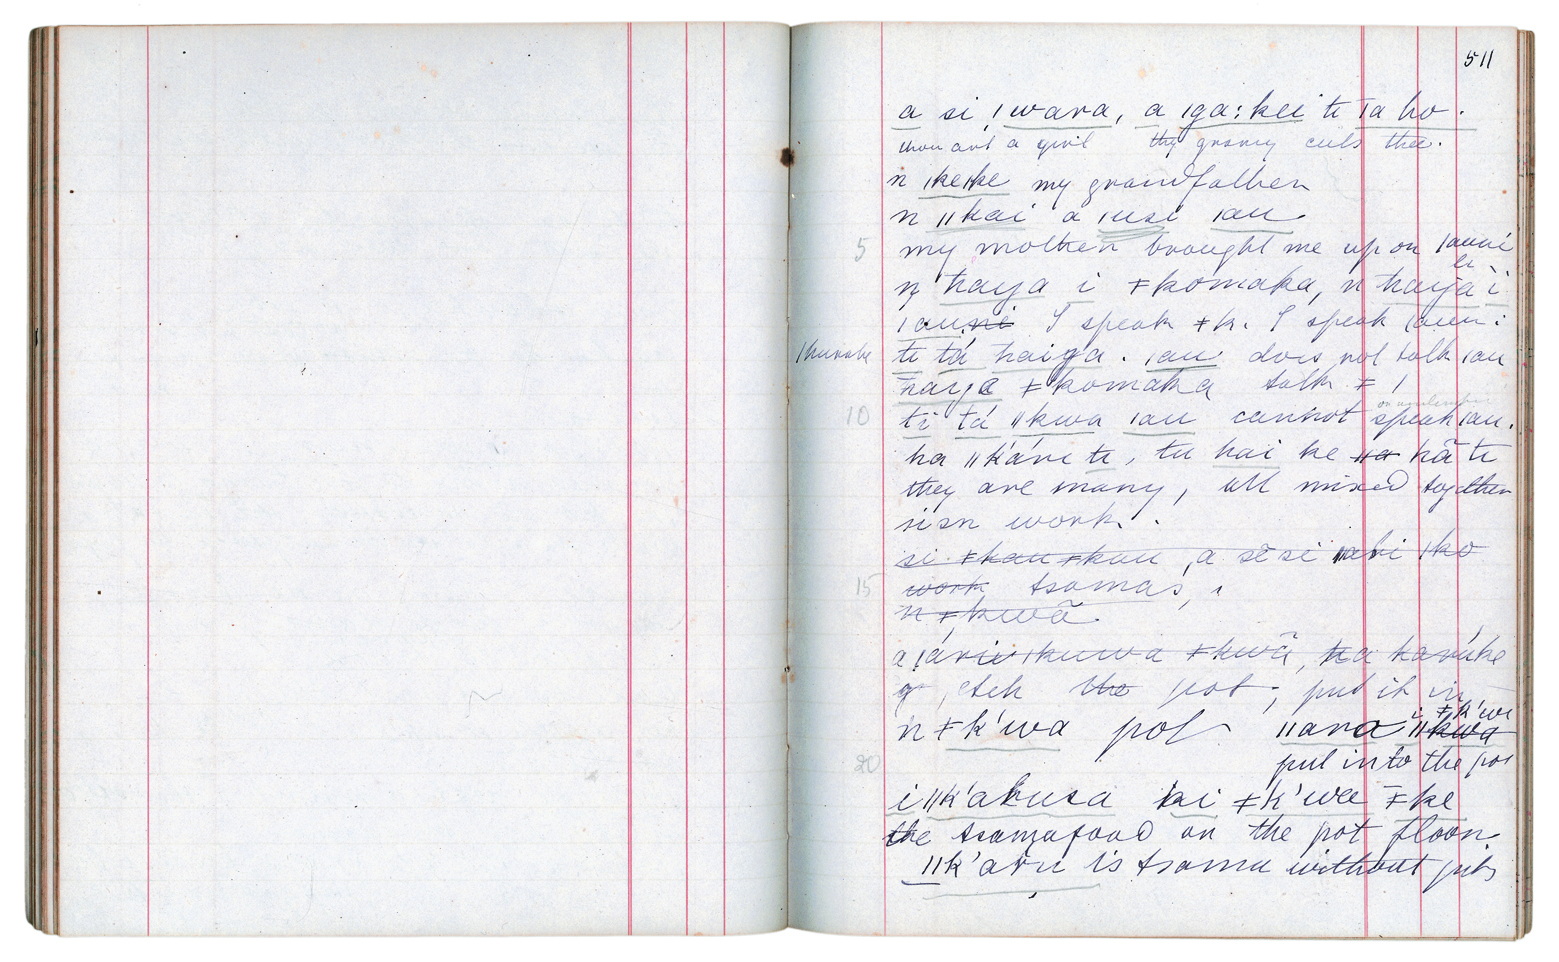 511
a si ǀwara, a ǀga:kei ti ǀa ho.
thou art a girl the granny cuts thee.
n ǀkeǀke my grandfather
n ǁkai a ǀusi ǀau.
5 my mother brought me up on ǀauni
ŋ haija i ǂkomaka, n haija i
ǀauni I speak ǂk. I speak ǀauni
ti tá haiga. ǀau does not talk ǀau
haija ǂkomaka talk ǂ !
10 ti tá ǁkwa ǀau cannot speak ǀau.
ha ǁkávi ti, tu hai ke ǁa hã ti
they are many, all mixed together
sisn work.
si ǂkau ǂkau, a sĕ si ǁabi ǀko
15 work tsamas,
n ǂkwã
a ǀáriu ǀkuwa ǂkwã, ha karúke
fetch the pot, put it in
n ǂk'wa pot ǁara i ǂk'wa ǁkwa
20 put into the pot
i ǁk'abusa ki ǂk'wa ǂke
the tsamafood on the pot floor
ǁk'aru is tsama without pits